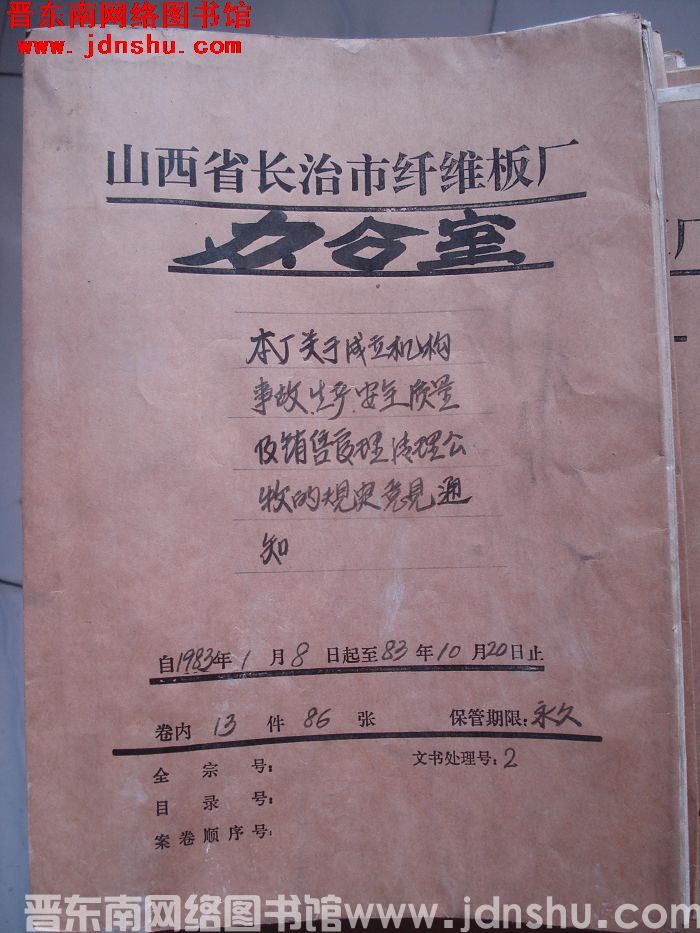 晋东南网络图书馆
www.jdnshu.com
山西省长治市纤维板厂
办公室
本厂关于成立机构
事故.生产.安全质量
及销售管理清理公
物的规定意见通
知
自1983年1月8日起至83年10月20日止
卷内 13 件 86 张 保管期限:永久
全宗号: 文书处理号:2
目录号:
案卷顺序号:
厂
晋东南网络图书馆 www.jdnshu.com